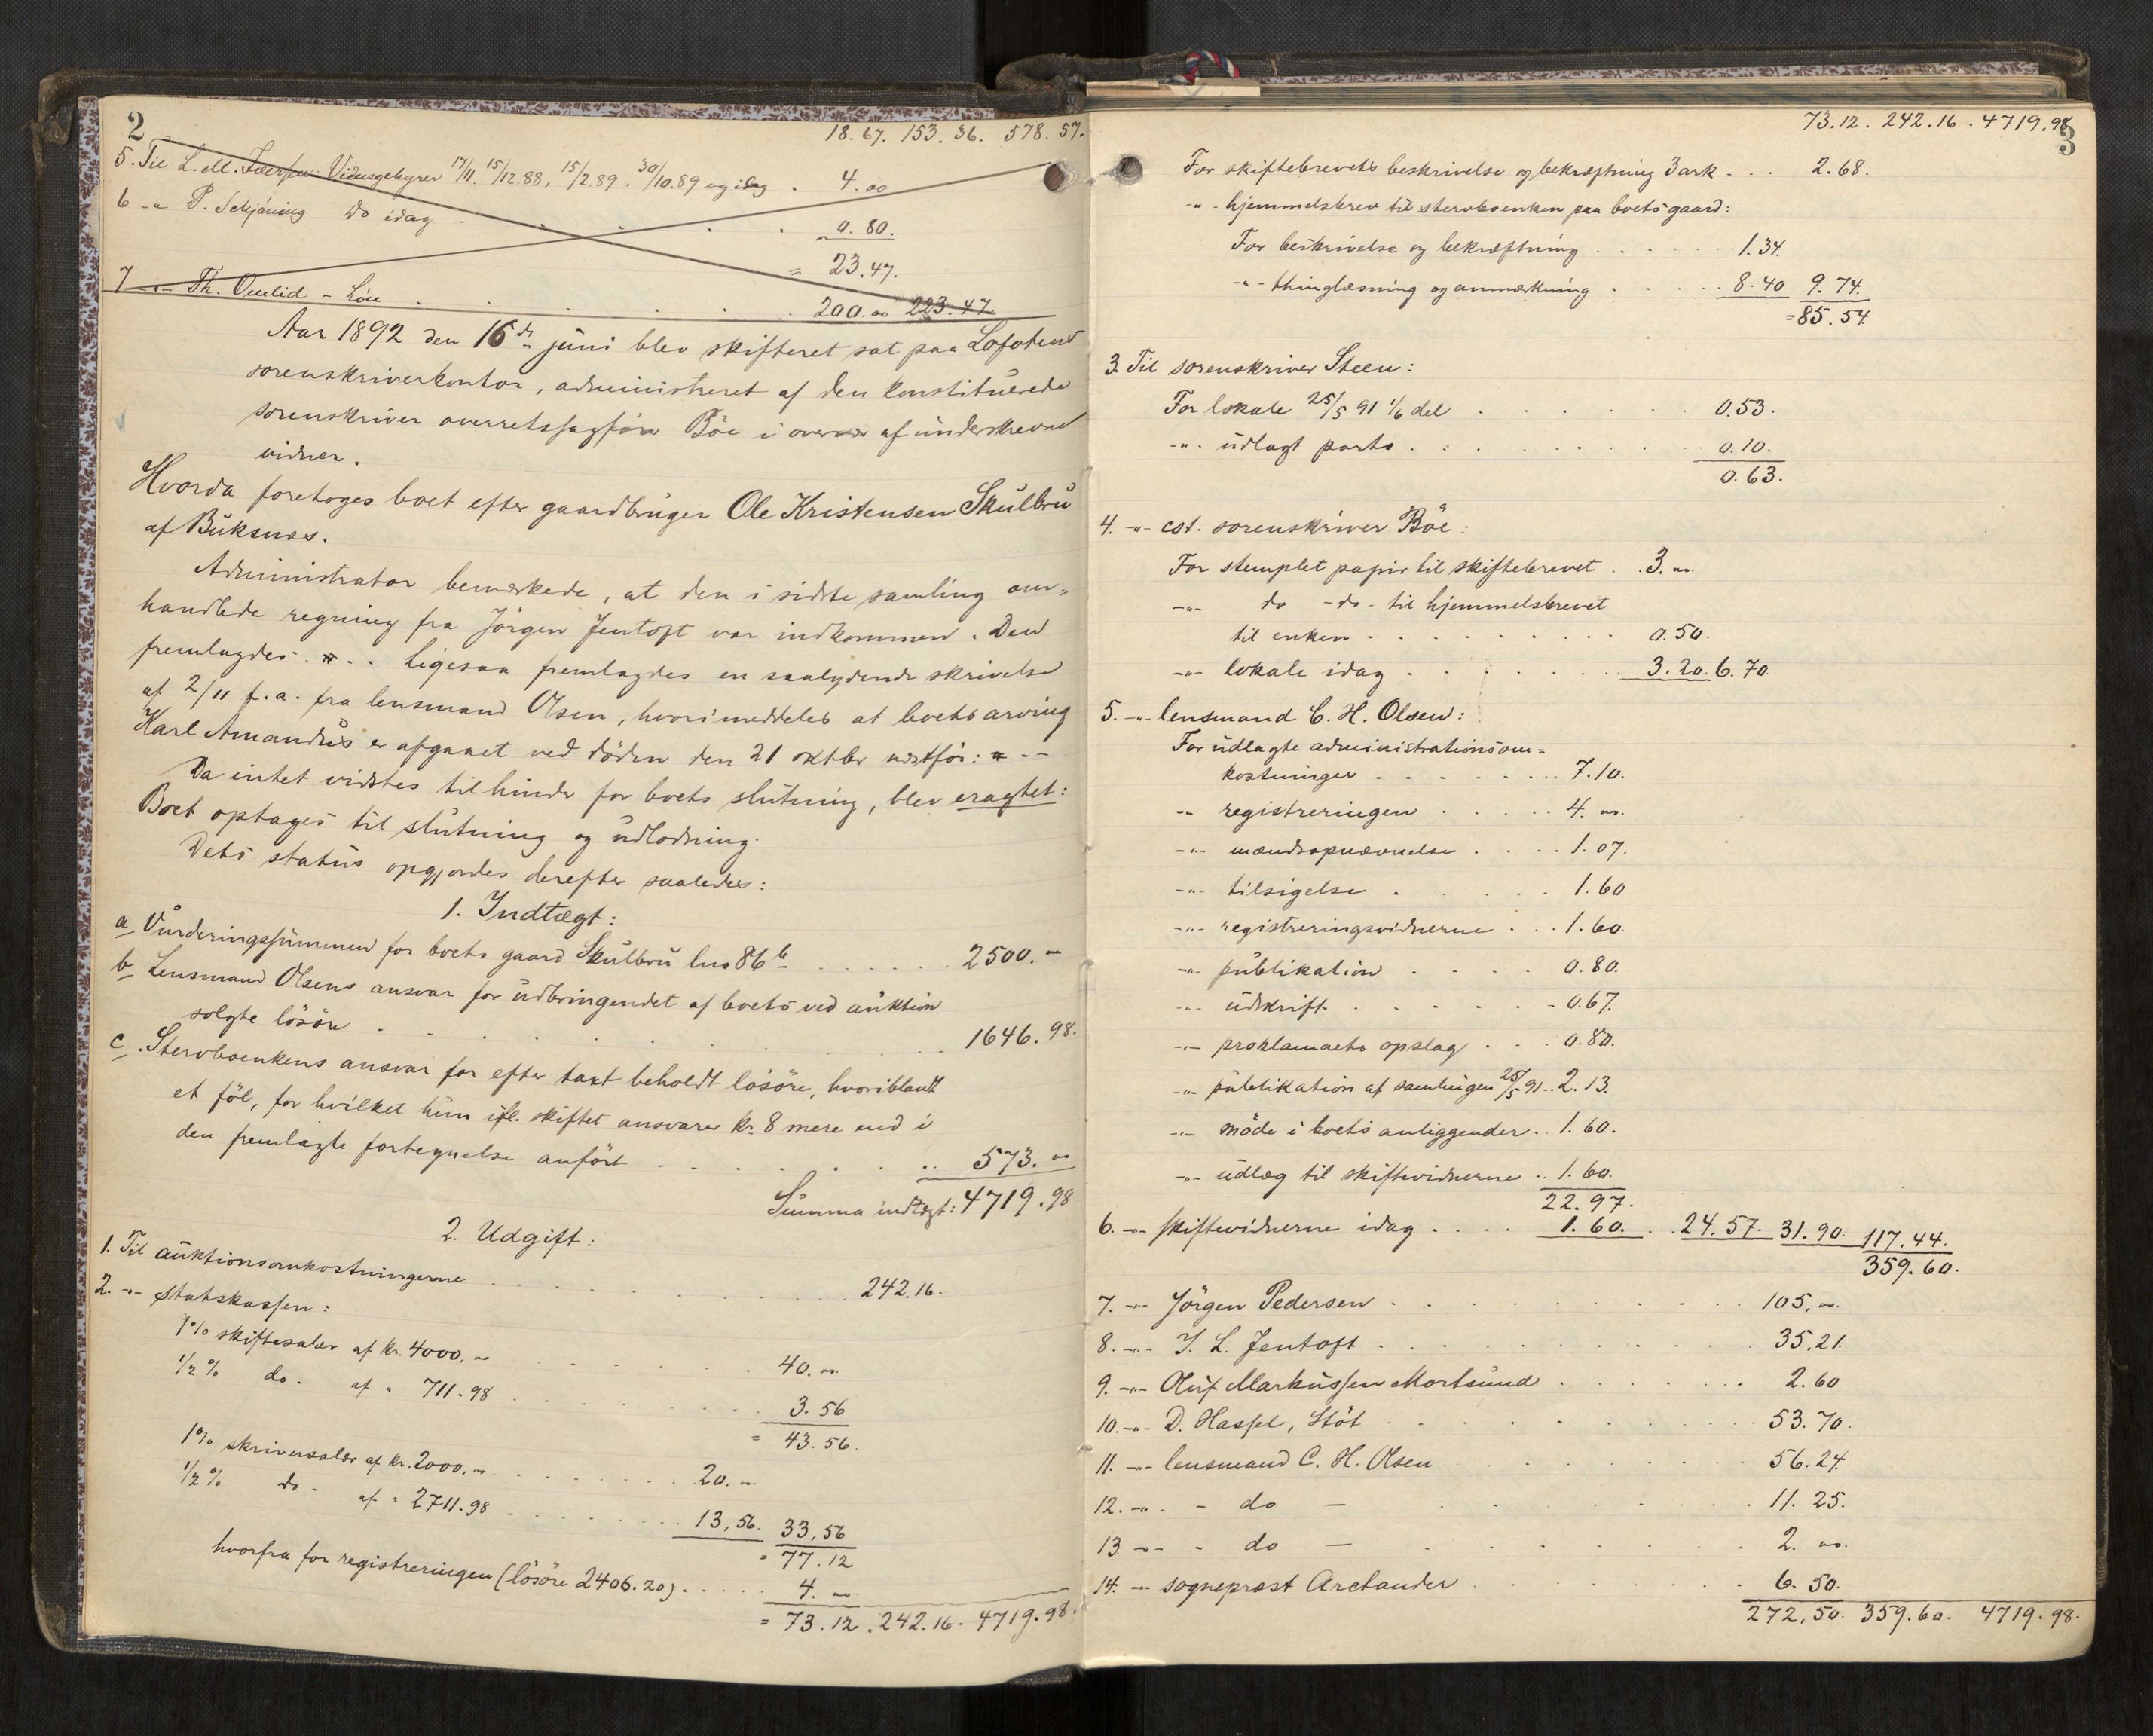 2
18.67. 153.36. 578.57.
5. Til L. M. Iversen: Vidnegebyrer 17/11. 15/12.88, 15/2.89. 30/10.89 og idag . 4.00
6 -"- P. Schjöning do idag . . . . . 0.80.
= 23.47.
7 -"- Th. Omlid - Lön . . . . . . 200.00 223.47
Aar 1892 den 16de juni blev skifteret sat paa Lofotens
sorenskriverkontor, administreret af den konstituerede
sorenskriver overretssagförer Böe i overvær af underskrevne
vidner.
Hvorda foretoges boet efter gaardbruger Ole Kristensen Skulbru
af Buksnes.
Administrator bemærkede, at den i sidste samling om-
handlede regning fra Jörgen Jentoft var indkommen. Den
fremlagdes. . . Ligesaa fremlagdes en saalydende skrivelse
af 2/11 f.a. fra lensmand Olsen, hvori meddeles at boets arving
Karl Amandus er afgaaet ved döden den 21 oktbr næstför: - -
Da intet vidstes til hinder for boets slutning, blev eragtet:
Boet optages til slutning og udlodning.
Dets status opgjordes derefter saaledes:
1. Indtægt:
a Vurderingssummen for boets gaard Skulbru lno 86 b . . . . . . 2500."
b Lensmand Olsens ansvar for udbringendet af boets ved auktion
solgte lösöre . . . . . . . . 1646.98.
c. Sterboenkens ansvar for efter taxt beholdt lösöre, hvoriblandt
et föl, for hvilket hun ifl. skiftet ansvarer kr. 8 mere end i
den fremlagte fortegnelse anfört . . . . . . . 573."
Summa indtægt: 4719.98
2. Udgift:
1. Til auktionsomkostningerne . . . . . . . . . 242.16.
2. -"- Statskassen:
1% skiftesalær af kr. 4000." . . . . . . . 40."
1/2 % do. af " 711.98 . . . . . . . . 3.56
= 43.56.
1% skriversalær af kr. 2000." . . . . . . . 20."
1/2 % do. af " 2711.98 . . . . . . . 13,56. 33,56
= 77.12
hvorfra for registreringen (lösöre 2406.20) . . . . . 4."
= 73.12. 242.16. 4719.98.
73.12. 242.16. 4719.98
3
For skiftebrevets beskrivelse og bekræftning 3 ark . . . 2.68.
-"- hjemmelsbrev til sterboenken paa boets gaard:
For beskrivelse og bekræftning . . . . . . 1.34.
-"- thinglæsning og anmærkning . . . . . 8.40 9.74.
= 85.54
3. Til sorenskriver Steen:
For lokale 25/5 91 1/6 del . . . . . . . 0.53.
-"- udlagt porto . . . . . . . . 0.10.
0.63.
4. -"- cst. sorenskriver Böe:
For stemplet papir til skiftebrevet . . 3."
-"- do -do- til hjemmelsbrevet
til enken . . . . . . . . . 0.50.
-"- lokale idag . . . . . . . 3.20. 6.70.
5. -"- lensmand C. H. Olsen:
For udlagte administrationsom-
kostninger . . . . . . . . 7.10.
-"- registreringen . . . . . 4."
-"- mændsopnævnelse . . . . 1.07.
-"- tilsigelse . . . . . 1.60
-"- registreringsvidnerne . . . 1.60.
-"- publikation . . . . 0.80.
-"- udskrift . . . . . . 0.67.
-"- proklamaets opslag . . . 0.80.
-"- publikation af samlingen 25/5 91 . . 2.13.
-"- möde i boets anliggender . . 1.60.
-"- udlæg til skiftevidnerne . . 1.60.
22.97.
6. -"- skiftevidnerne idag . . . . 1.60. . . 24.57. 31.90. 117.44.
359.60.
7. -"- Jörgen Pedersen . . . . . . . . . . 105,"
8. -"- J. L. Jentoft . . . . . . . . . . . 35.21.
9. -"- Oluf Markussen Mortsund . . . . . . 2.60
10. -"- D. Hassel, Stöt . . . . . . . . . 53.70.
11. -"- lensmand C. H. Olsen . . . . . . . 56.24.
12. -"- - do — . . . . . . . 11.25.
13 -"- - do — . . . . . . . 2."
14. -"- sogneprest Arctander . . . . . . . 6.50.
272,50. 359.60. 4719.98.